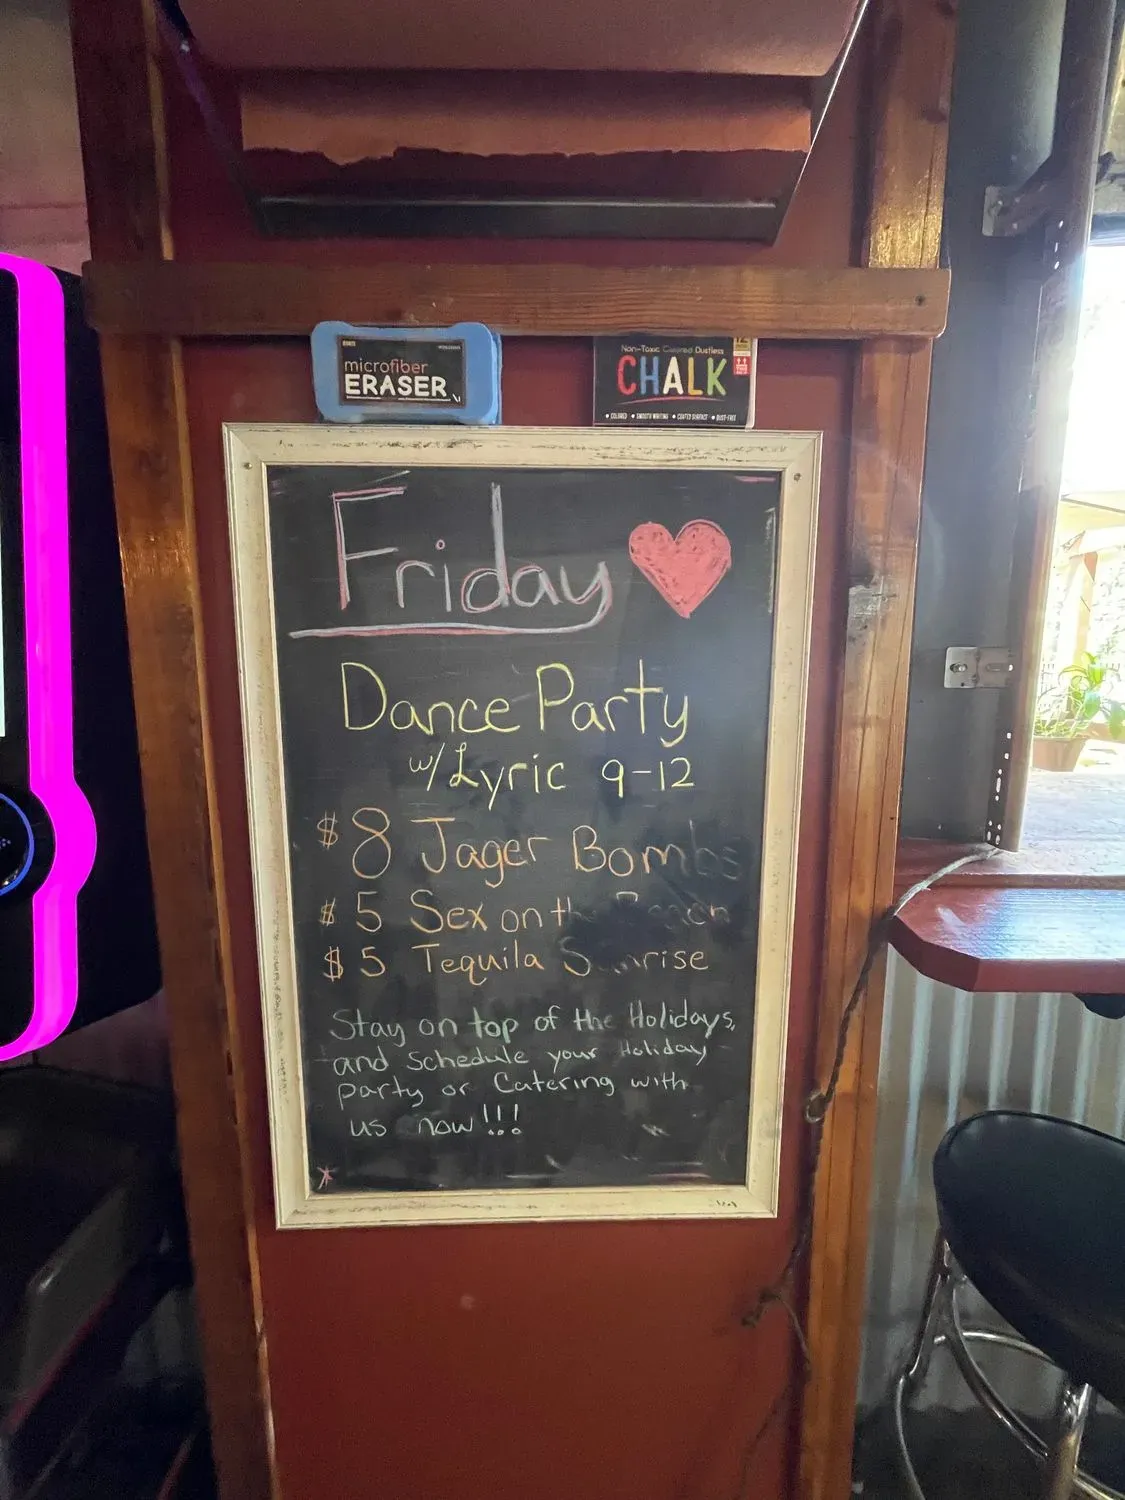 microfiber
ERASER
Non-Toxic Colored Dustless
CHALK
12
• COLORED • SMOOTH WRITING • COATED SURFACE • DUST-FREE
Friday
Dance Party
w/ Lyric 9-12
$8 Jager Bombs
$5 Sex on the Beach
$5 Tequila Sunrise
Stay on top of the Holidays,
and schedule your Holiday
party or Catering with
us now!!!